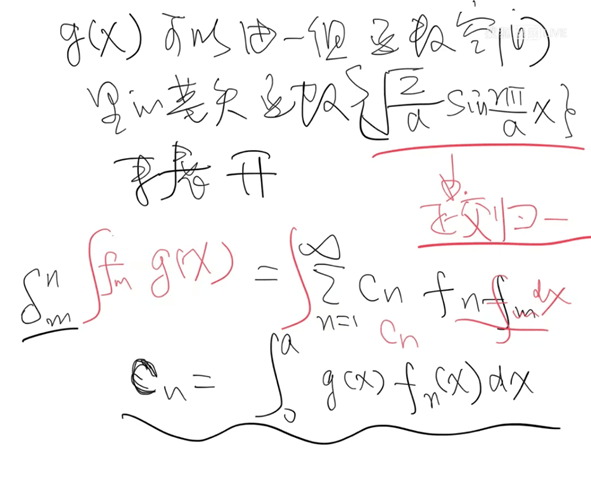 g(x) 可以由一组函数空间
里的基矢函数{√(2/a) sin nπ/a x}
来展开
正交归一
δₘⁿ ∫fₘ g(x) = ∫ ∑ₙ₌₁^∞ Cₙ fₙ fₘ dx
Cₙ
Cₙ = ∫₀ᵃ g(x) fₙ(x) dx